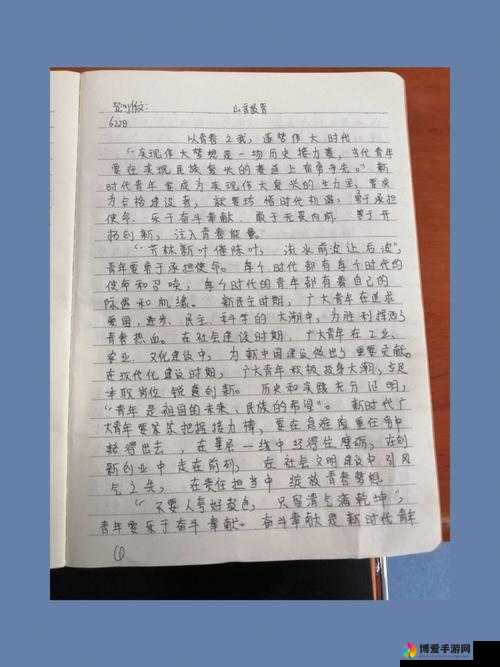 山言教育
6228
以青春之我，逐梦伟大时代
"实现伟大梦想是一场历史接力赛，当代青年
要在实现民族复兴的赛道上奋勇争先。"新
时代青年要成为实现伟大复兴的生力军，要成
为合格建设者，就要珍惜时代机遇，勇于承担
使命、乐于奋斗奉献、敢于无畏向前、善于开
拓创新，注入青春能量
"芳林新叶催陈叶，流水前波让后波"，
青年要勇于承担使命。每个时代都有每个时代的
使命和召唤，每个时代的青年都有着自己的
际遇和机缘。新民主时期，广大青年在追求
爱国，进步、民主、科学的大潮中，为胜利挥洒了
青春热血。在社会建设时期，广大青年在工业、
农业、文化建设中，为新中国建设做出了重要贡献。
在现代化建设时期，广大青年积极投身大潮，立足
本职岗位，锐意创新。历史和实践充分证明，
"青年是祖国的未来、民族的希望"。新时代广
大青年要紧紧把握接力棒，要在急难险重任务中
豁得出去，在基层一线中经得住磨砺，在创
新创业中走在前列，在社会文明建设中引风
气之先，在责任担当中绽放青春梦想
"不要人夸好颜色，只留清气满乾坤"，
青年要乐于奋斗奉献。奋斗奉献是新时代青年
博爱手游网